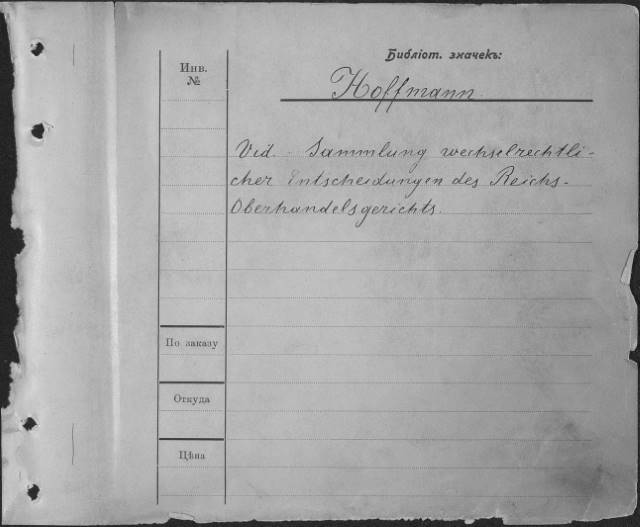 Библіот. значекъ:
Инв.
№
Hoffmann
Vid. - Sammlung wechselrechtli-
cher Entscheidungen des Reichs-
Oberhandelsgerichts.
По заказу
Откуда
Цѣна